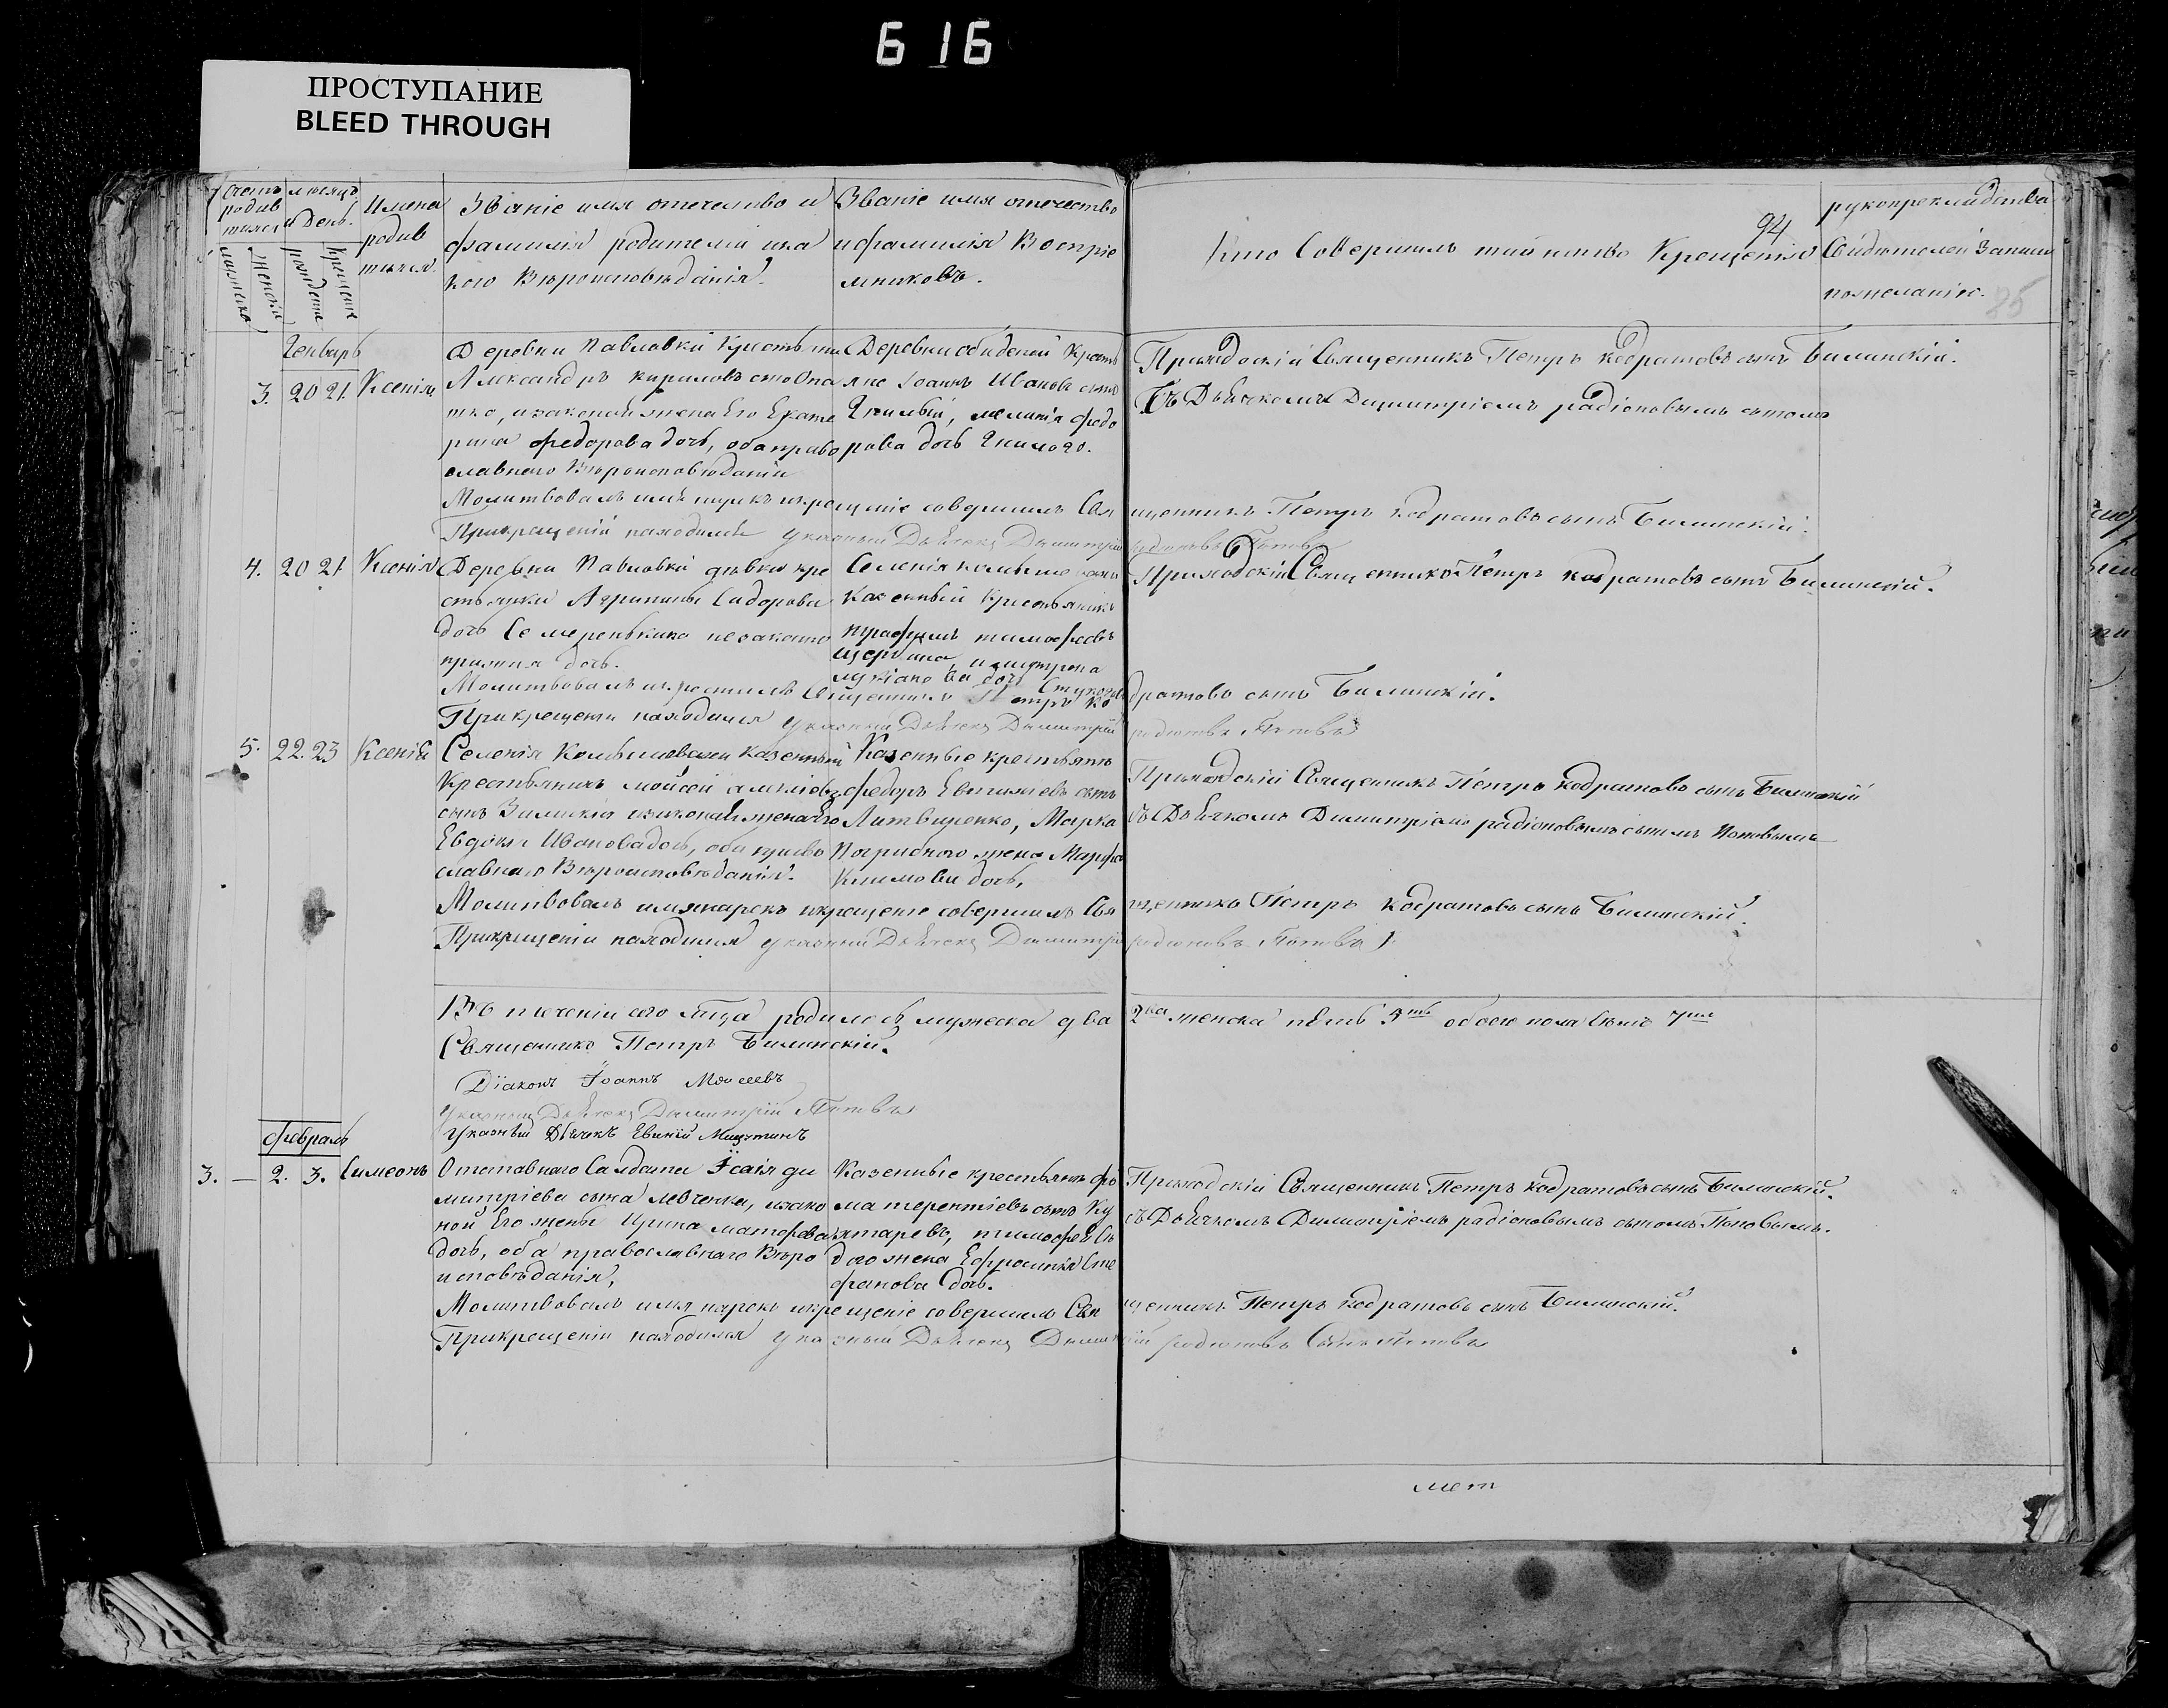 616
ПРОСТУПАНИЕ
BLEED THROUGH
Счетъ родив шихся
мужеска
женска
месяцъ и День.
рождение
крещение
Имена родив шихся
Званіе имя отечество и фамилія родителей и ка кого Вѣроисповѣданія.
Званіе имя отечество и фамилія Воспріе мниковъ.
Кто Совершилъ таинство Крещенія
94
рукоприкладство Свидетелей записи по желанію.
25
Генварь
3. 20 21. Ксенія
Деревни Павловки
Александръ Кириловъ
законная жена Его Екате
рина Федорова дочь, оба право
славнаго Вѣроисповѣданія
Деревни
Іоаннъ Ивановъ сынъ
Гнилый, Федо
рова дочь Гнилого.
Приходскій Священникъ Петръ кодратовъ сынъ Билинскій.
Съ Дьячкомъ Димитріемъ радіоновымъ сыномъ
Молитвовалъ имя нарекъ и крещеніе совершилъ Священникъ Петръ кодратовъ сынъ Билинскій.
При крещеніи находился указный Дьячекъ Димитрій родионовъ Поповъ
4. 20 21 Ксенія
Деревни Павловки девки кре
стьянки Агрипины Сидорова
дочь Семеренькина незаконно
прижитая дочь.
Селенія
Казенный Крестьянинъ
трофимъ тимофеевъ
Щербина,
дочь
Приходскій Священникъ Петръ кодратовъ сынъ Билинскій.
Молитвовалъ и крестилъ Священникъ Петръ кодратовъ сынъ Билинскій.
При крещеніи находился указный Дьячекъ Димитрій родионовъ Поповъ
5. 22. 23 Ксенія
Селенія Казенный
Крестьянинъ мойсей
сынъ законная жена Его
Евдокія Иванова дочь, оба право
славнаго Вѣроисповѣданія.
Казенные крестьяне
федоръ Евтихіевъ сынъ
Литвиненко, Марка
жена Марфа
Климова дочь,
Приходскій Священникъ Петръ кодратовъ сынъ Билинскій
съ Дьячкомъ Димитріемъ радіоновымъ сыномъ Поповымъ
Молитвовалъ имя нарекъ и крещеніе совершилъ Священникъ Петръ кодратовъ сынъ Билинскій.
При крещеніи находился указный Дьячекъ Димитрій родионовъ Поповъ
Въ теченіи сего мѣсяца родилось мужеска два 2ва женска пять 5ть обоего пола семь 7мь
Священникъ Петръ Билинскій.
Діаконъ Іоаннъ Моисеевъ
указный Дьячекъ Димитрій Поповъ
Указный Дьячекъ
Февраль
3. — 2. 3. Симеонъ
Отставнаго Салдата Ісаія ди
митріева сына левченка, изако
ной Его жены Ирина
дочь, оба православнаго Веро
исповѣданія,
Казенные крестьяне фо
ма терентіевъ сынъ Ку
хтаревъ, тимофея
жена Ефросинія Сте
фанова дочь.
Приходскій Священникъ Петръ кодратовъ сынъ Билинскій.
съ Дьячкомъ Димитріемъ радіоновымъ сыномъ Поповымъ.
Молитвовалъ имя нарекъ и крещеніе совершилъ Священникъ Петръ кодратовъ сынъ Билинскій.
При крещеніи находился указный Дьячекъ Димитрій родионовъ Сынъ Поповъ
мет